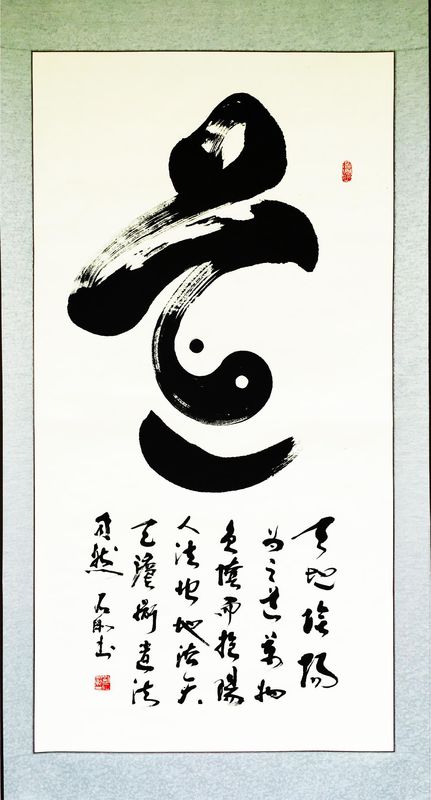 道
天地陰陽
為之道萬物
負陰而抱陽
人法地地法天
天法道道法
自然 石 書